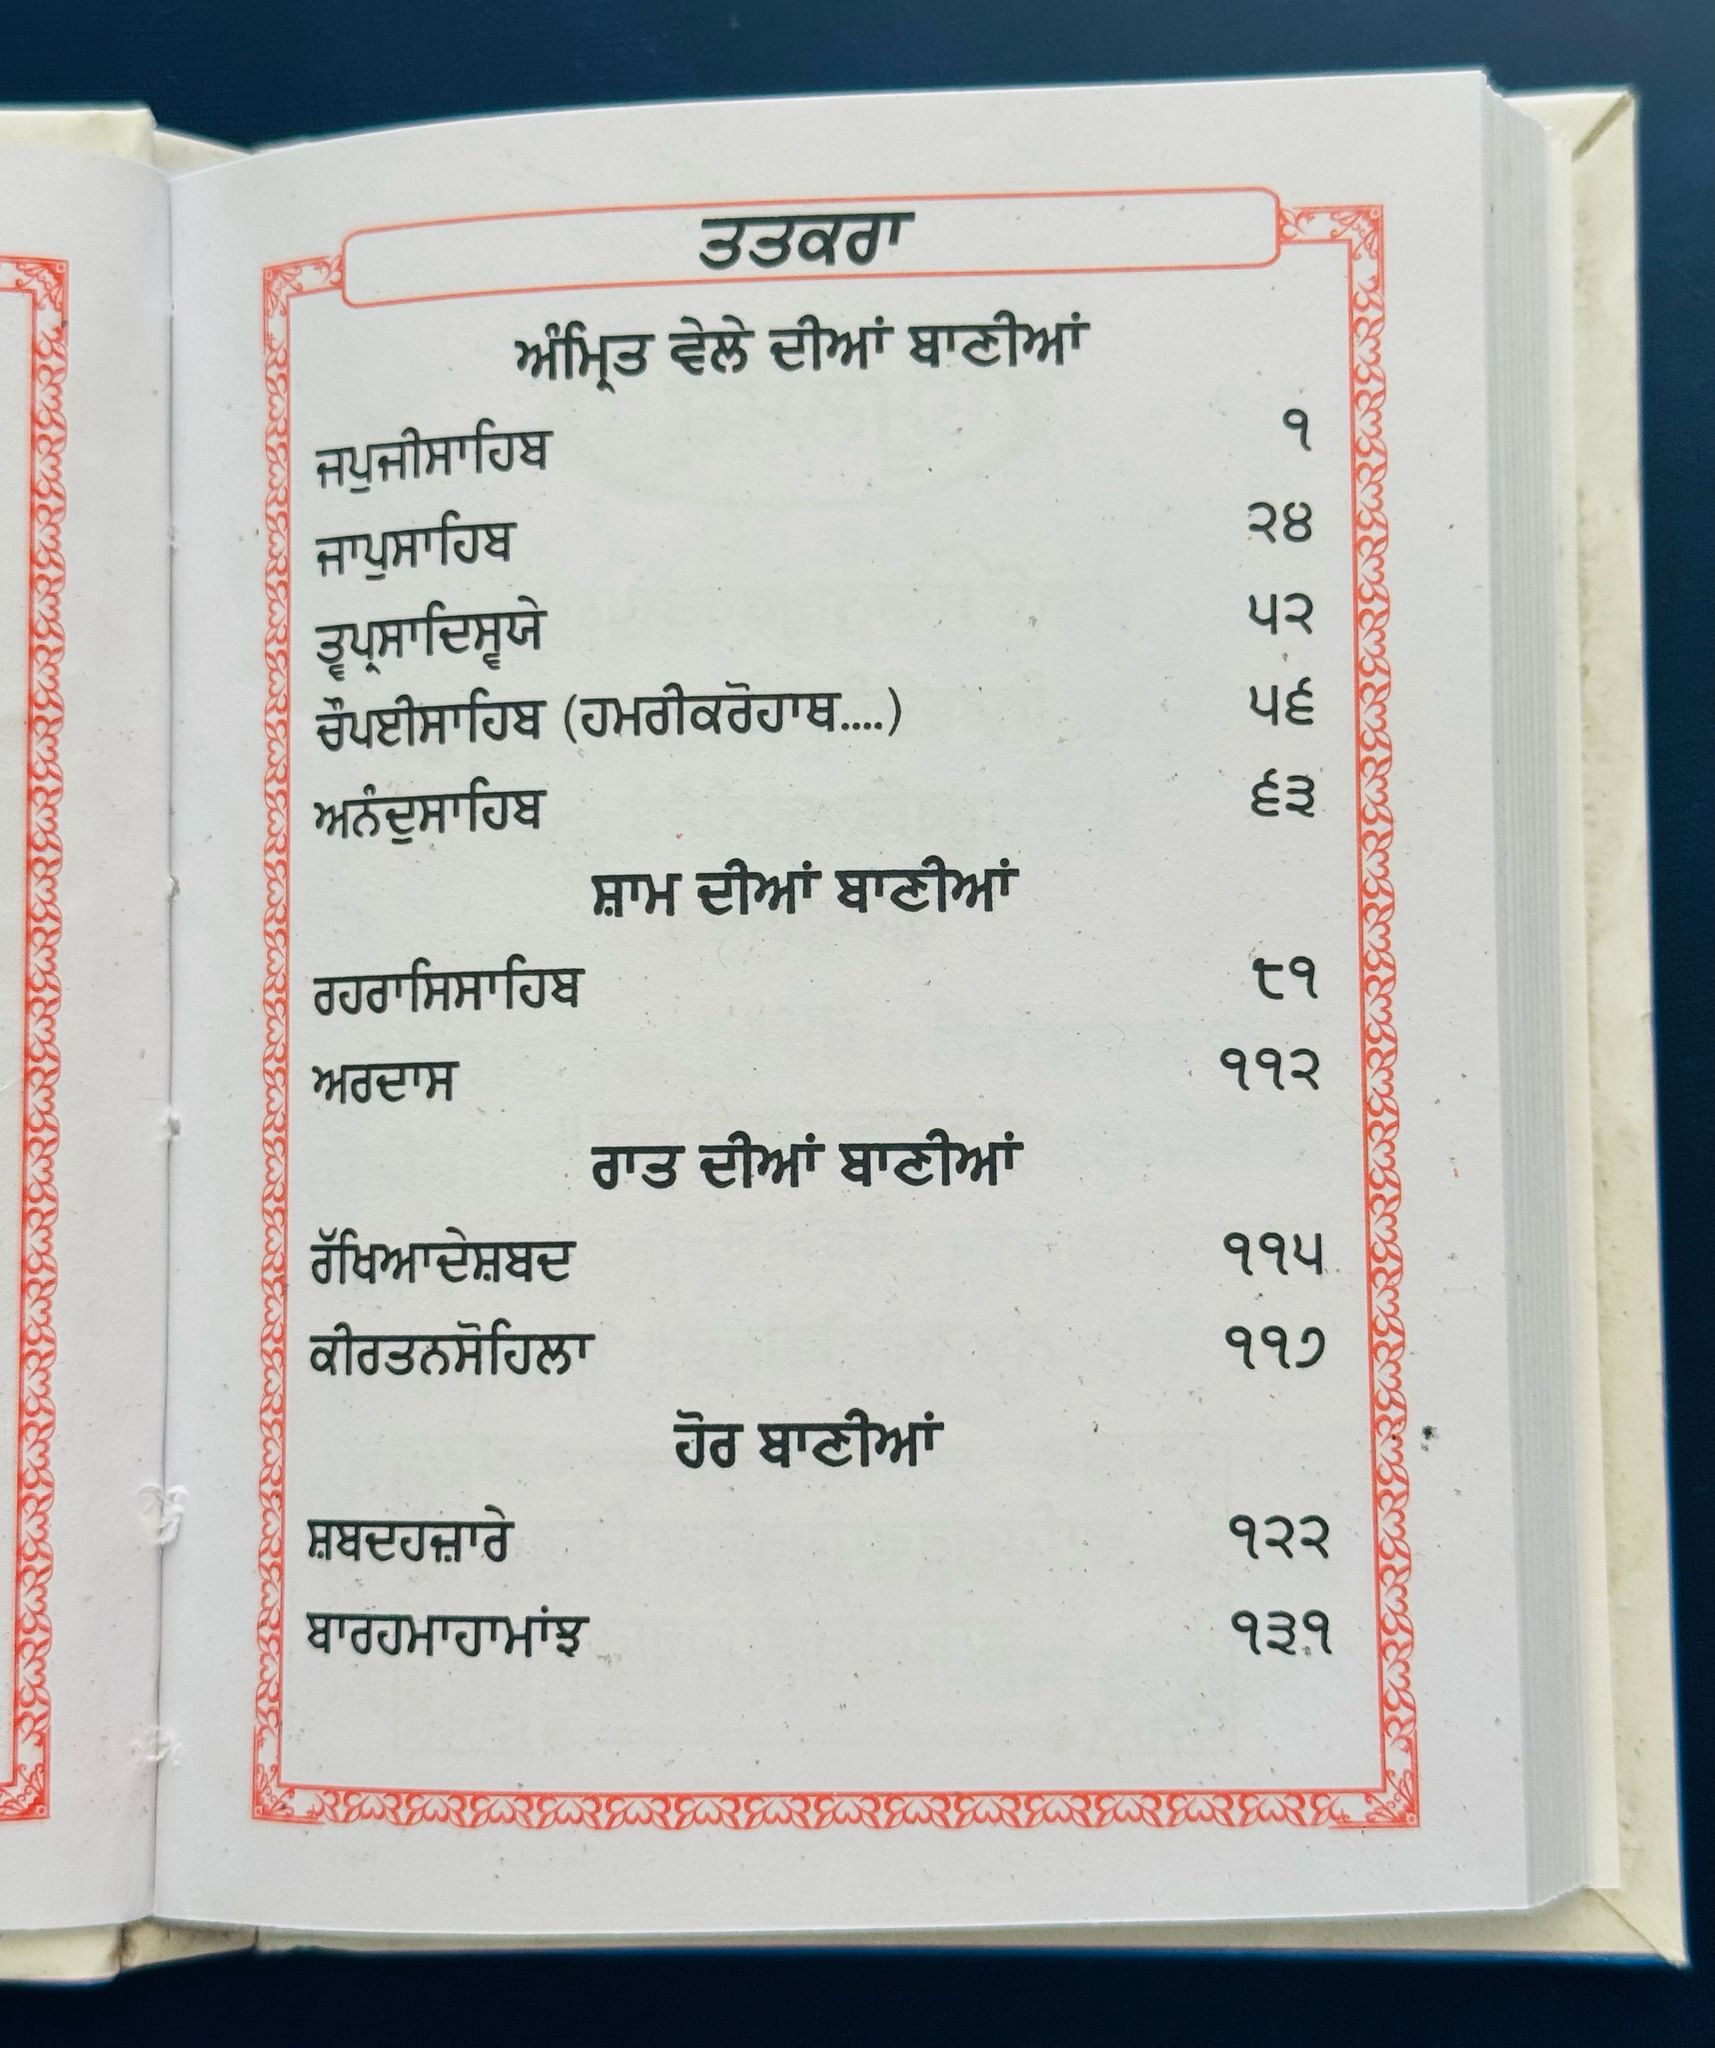 ਤਤਕਰਾ
ਅੰਮ੍ਰਿਤ ਵੇਲੇ ਦੀਆਂ ਬਾਣੀਆਂ
ਜਪੁਜੀਸਾਹਿਬ ੧
ਜਾਪੁਸਾਹਿਬ ੨੪
ਤ੍ਵਪ੍ਰਸਾਦਿਸ੍ਵਯੇ ੫੨
ਚੌਪਈਸਾਹਿਬ (ਹਮਰੀਕਰੋਹਾਥ....) ੫੬
ਅਨੰਦੁਸਾਹਿਬ ੬੩
ਸ਼ਾਮ ਦੀਆਂ ਬਾਣੀਆਂ
ਰਹਰਾਸਿਸਾਹਿਬ ੮੧
ਅਰਦਾਸ ੧੧੨
ਰਾਤ ਦੀਆਂ ਬਾਣੀਆਂ
ਰੱਖਿਆਦੇਸ਼ਬਦ ੧੧੫
ਕੀਰਤਨਸੋਹਿਲਾ ੧੧੭
ਹੋਰ ਬਾਣੀਆਂ
ਸ਼ਬਦਹਜ਼ਾਰੇ ੧੨੨
ਬਾਰਹਮਾਹਾਮਾਂਝ ੧੩੧